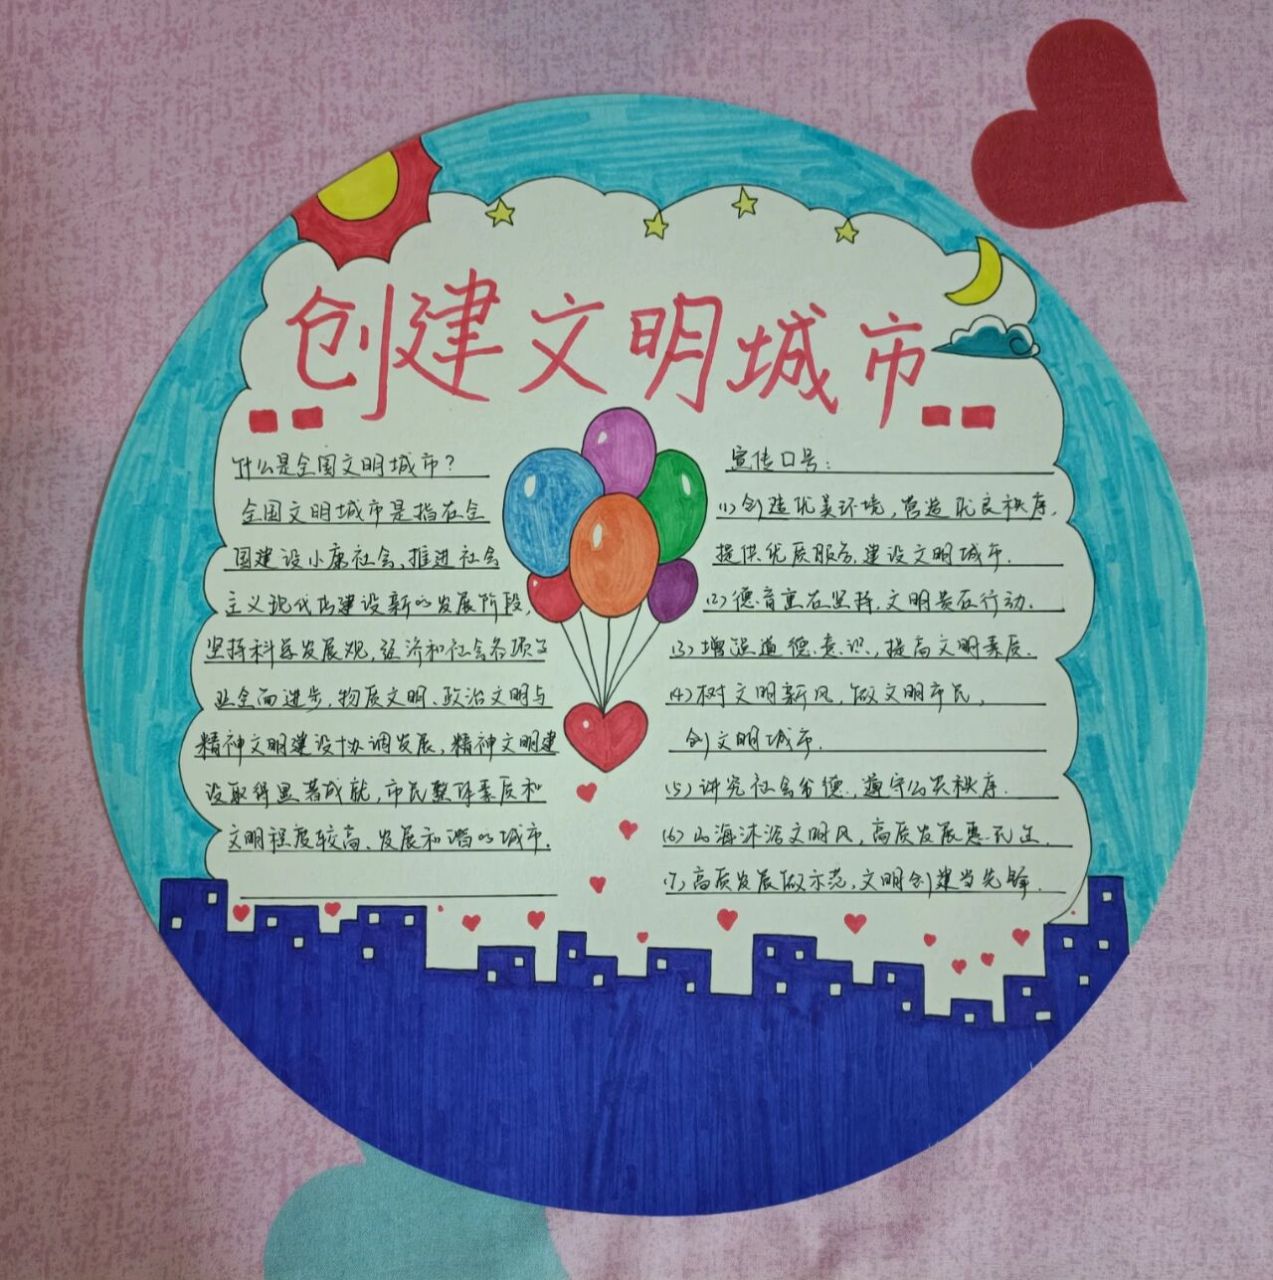 创建文明城市
什么是全国文明城市?
全国文明城市是指在全
国建设小康社会、推进社会
主义现代化建设新的发展阶段,
坚持科学发展观,经济和社会各项事
业全面进步,物质文明、政治文明与
精神文明建设协调发展,精神文明建
设取得显著成就,市民整体素质和
文明程度较高、发展和谐的城市.
宣传口号:
(1)创造优美环境,营造优良秩序,
提供优质服务,建设文明城市.
(2)德育重在坚持,文明贵在行动.
(3)增强道德意识,提高文明素质.
(4)树文明新风,做文明市民,
创文明城市.
(5)讲究社会公德,遵守公共秩序.
(6)山海沐浴文明风,高质发展惠民生.
(7)高质发展做示范,文明创建当先锋.